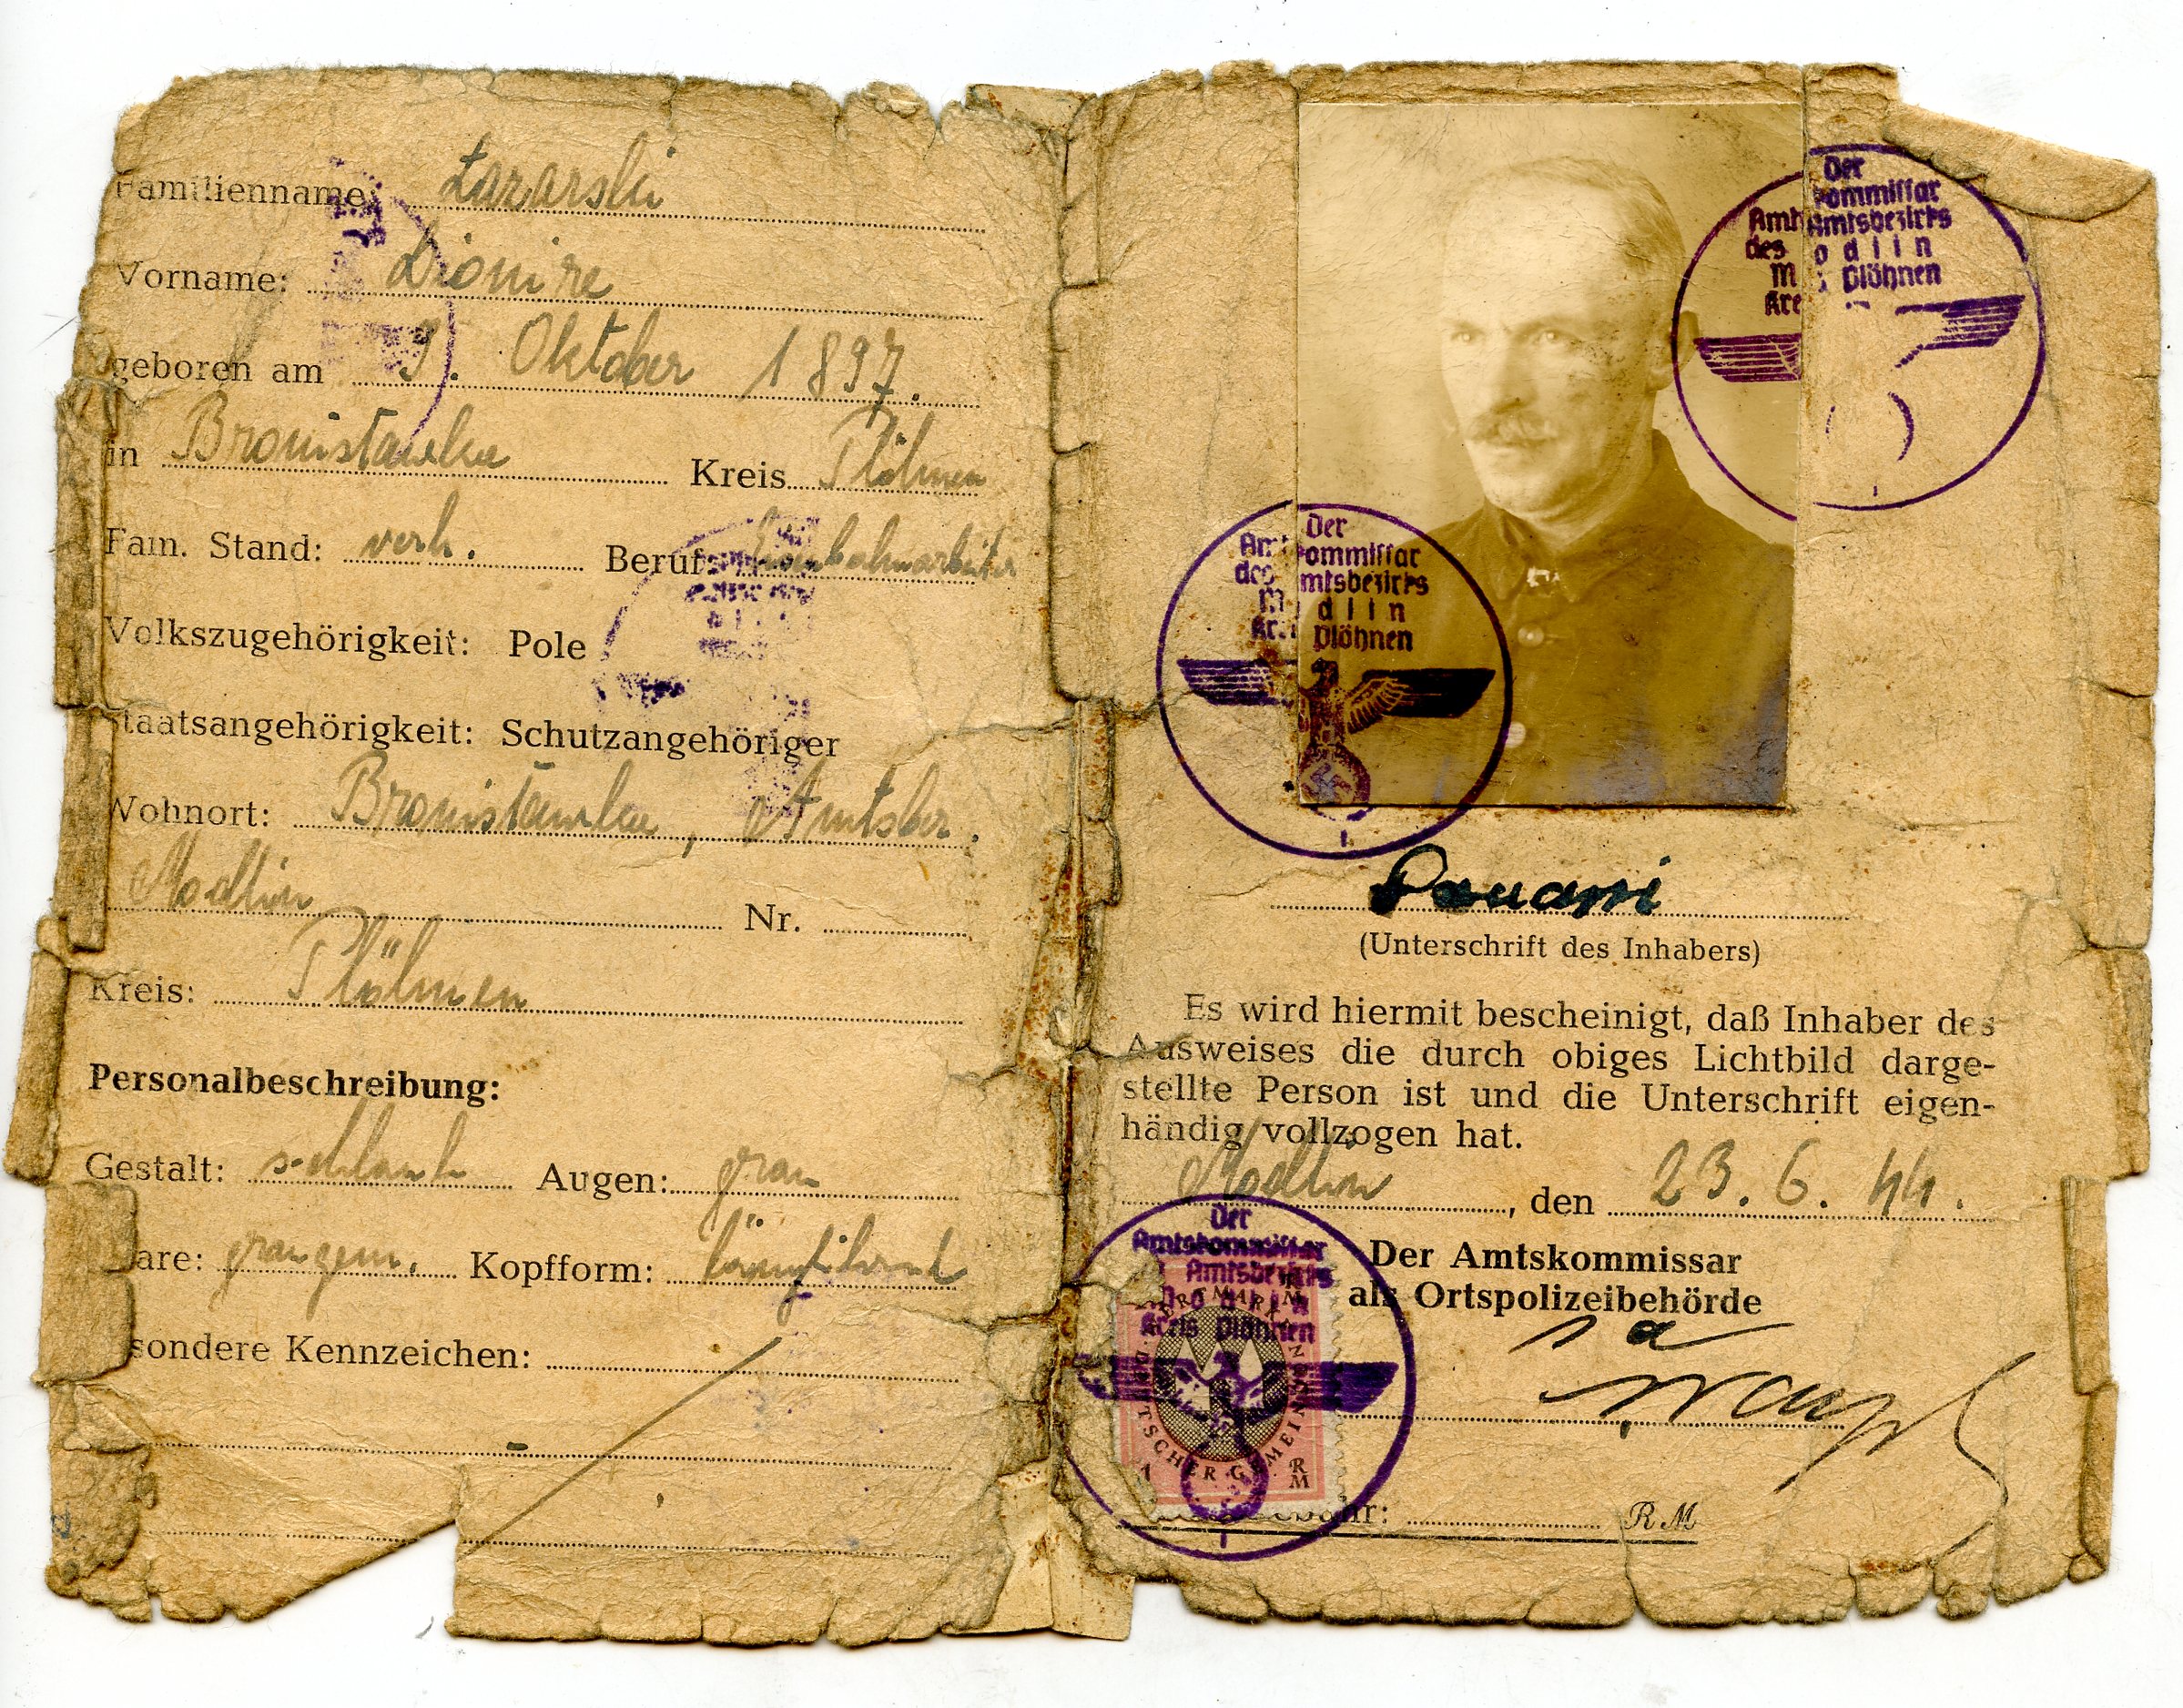 Familienname: Łazarski
Vorname: Dionize
geboren am 9. Oktober 1897.
in Bronisławka Kreis Plöhnen
Fam. Stand: verh. Beruf: Eisenbahnarbeiter
Volkszugehörigkeit: Pole
Staatsangehörigkeit: Schutzangehöriger
Wohnort: Bronisławka, Amtsbez.
Modlin Nr.
Kreis: Plöhnen
Personalbeschreibung:
Gestalt: schlank Augen: grau
are: Kopfform:
sondere Kennzeichen:
Der
Amtskommissar
des Amtsbezirks
Modlin
Kreis Plöhnen
1
Der
Amtskommissar
des Amtsbezirks
Modlin
Kreis Plöhnen
1
(Unterschrift des Inhabers)
Es wird hiermit bescheinigt, daß Inhaber des
Ausweises die durch obiges Lichtbild darge-
stellte Person ist und die Unterschrift eigen-
händig vollzogen hat.
Modlin, den 23. 6. 44.
Der Amtskommissar
als Ortspolizeibehörde
Der
Amtskommissar
Amtsbezirks
Modlin
Kreis Plöhnen
WERTMARKE DEUTSCHER GEMEINDEN
1 RM
1
RM